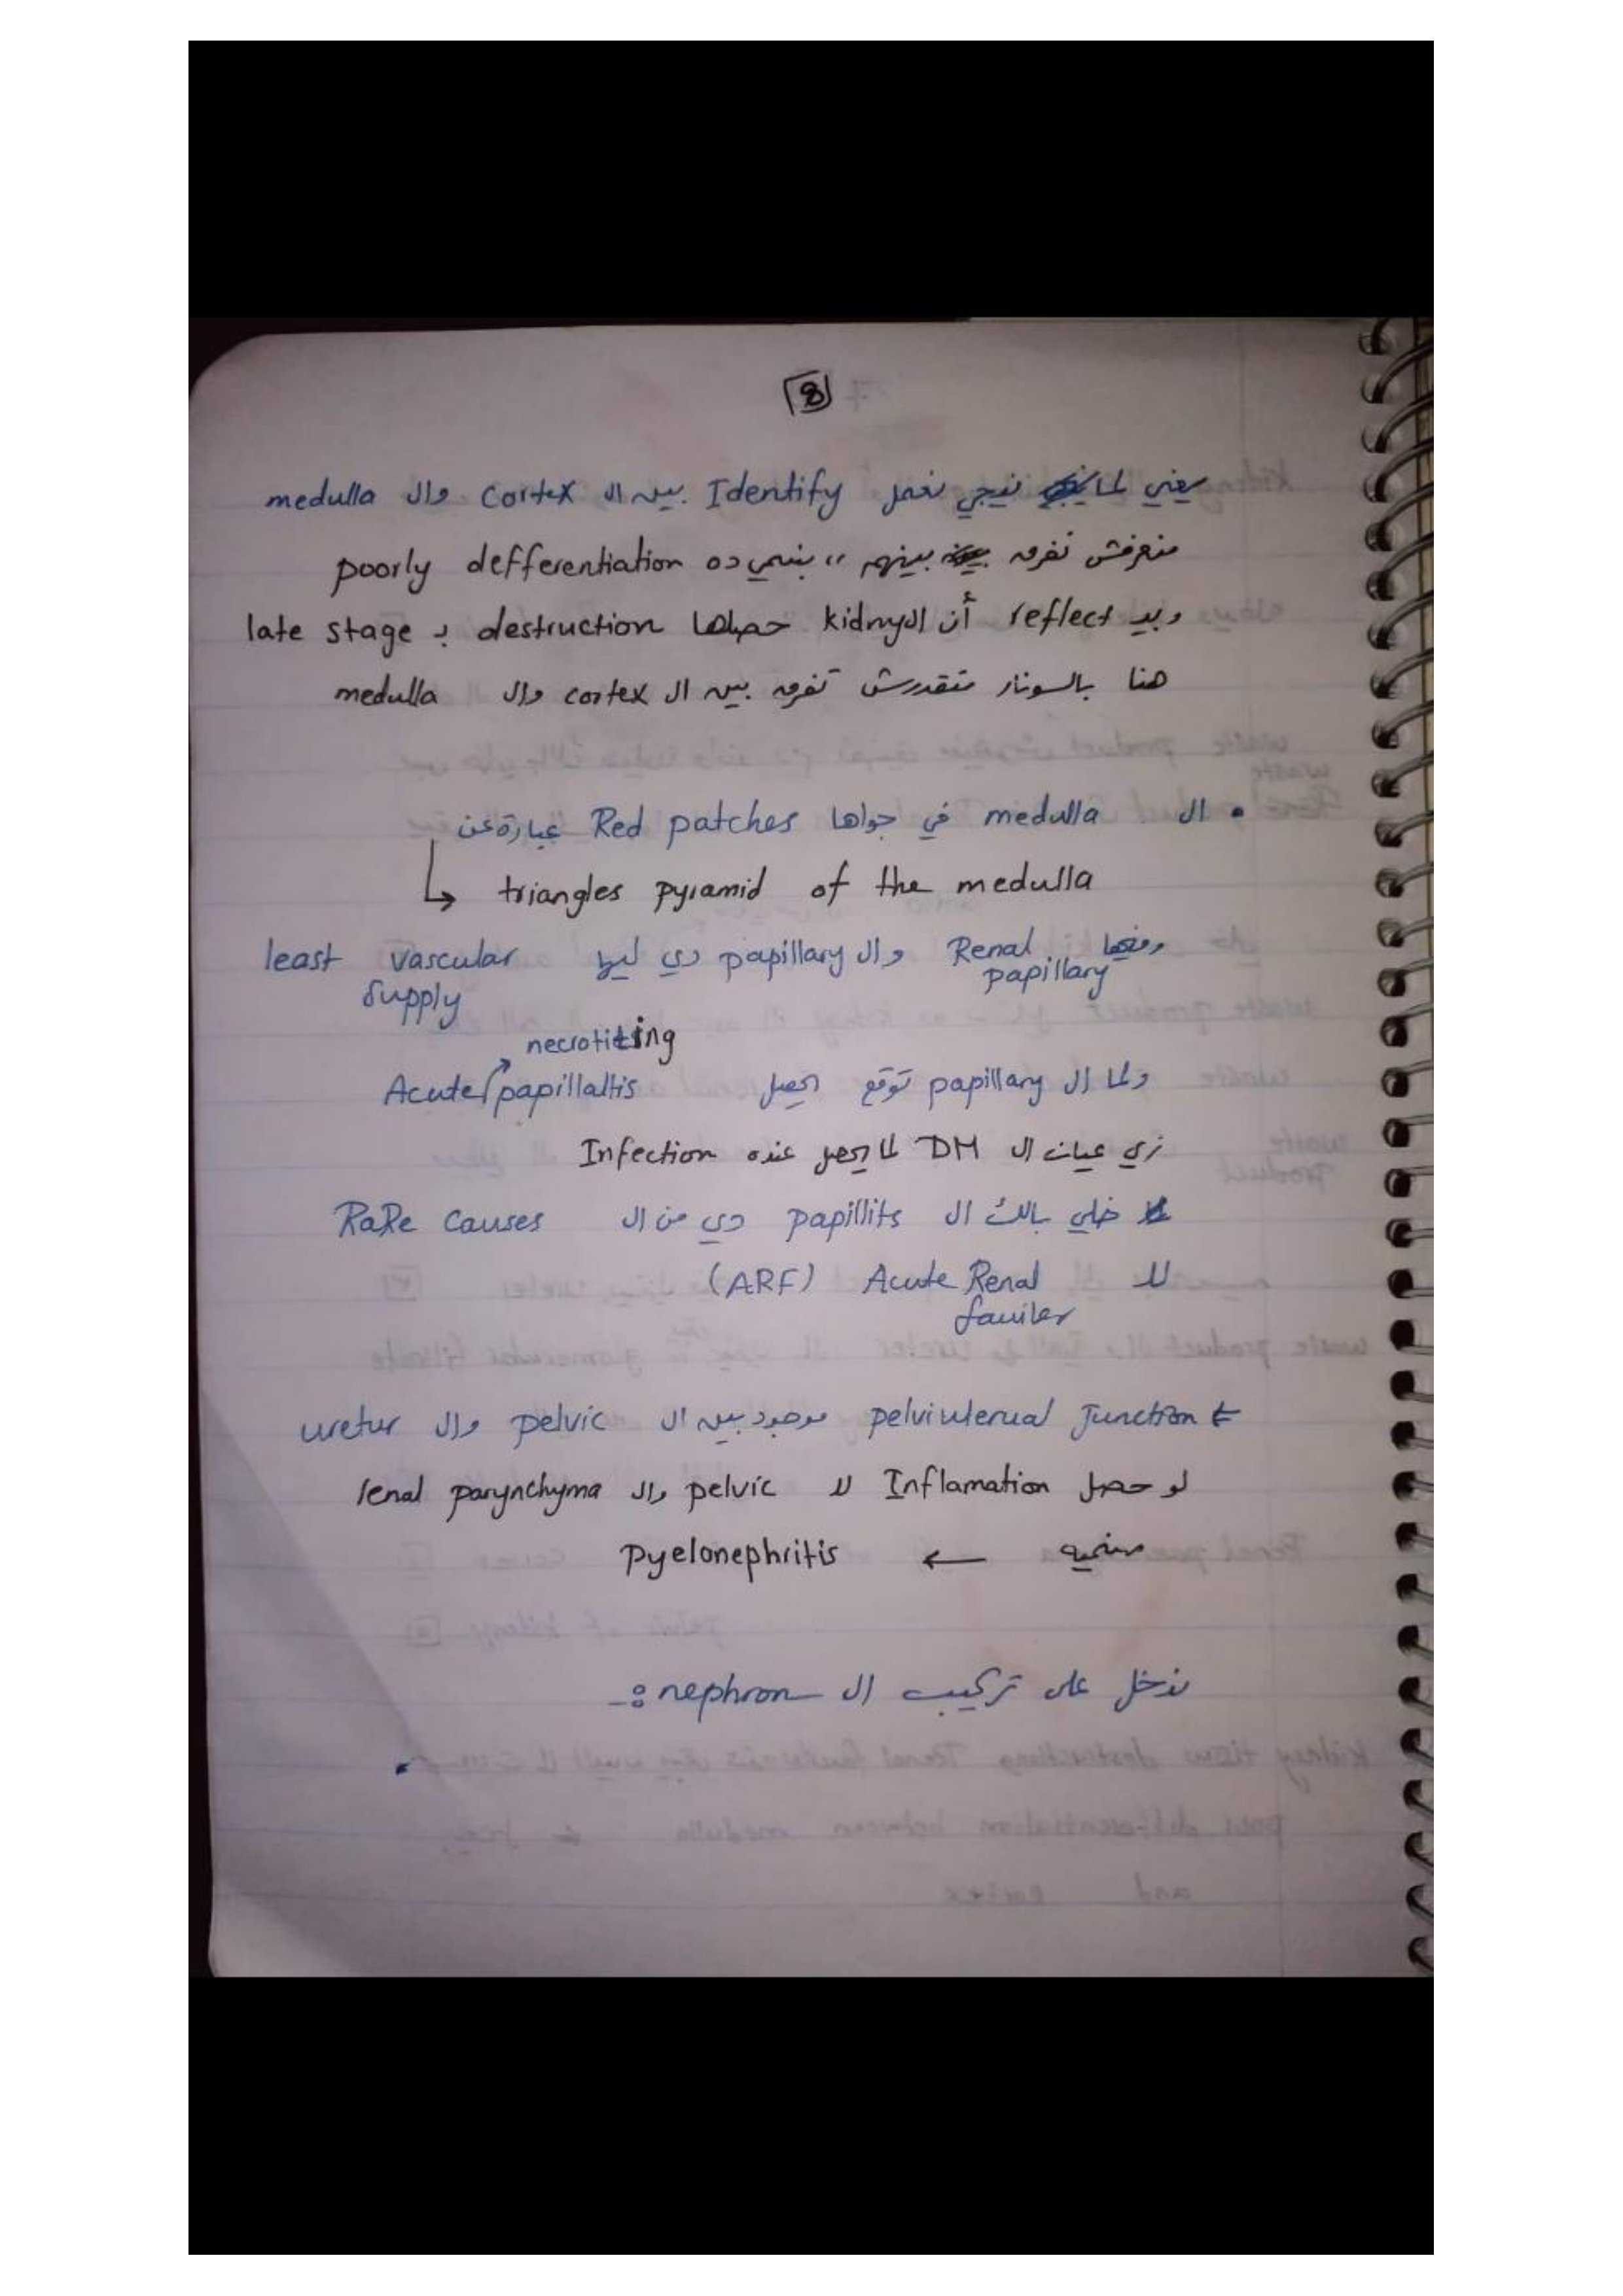 8
يعني لما نيجي نعمل Identify بين ال Cortex وال medulla
منعرفش نفرق بينهم ،، بنسمي ده poorly defferentiation
وبيـ reflect أن الـ kidny حصلها destruction بـ late stage
هنا بالسونار متقدرش تفرق بين ال cortex وال medulla
• ال medulla في جواها Red patches عبارة عن
↳ triangles pyramid of the medulla
وفيها Renal papillary وال papillary دي ليها least vascular supply
necrotizing
ولما ال papillary توقع يحصل Acute papillaltis
زي عيان ال DM لما يحصل عنده Infection
خلي بالك ال papillits دي من ال RaRe causes
لل Acute Renal faviler (ARF)
pelviuterual Junction موجود بين ال pelvic وال uretur
لو حصل Inflamation لل pelvic وال renal parynchyma
هنسميه ← pyelonephritis
ندخل على تركيب ال nephron :-